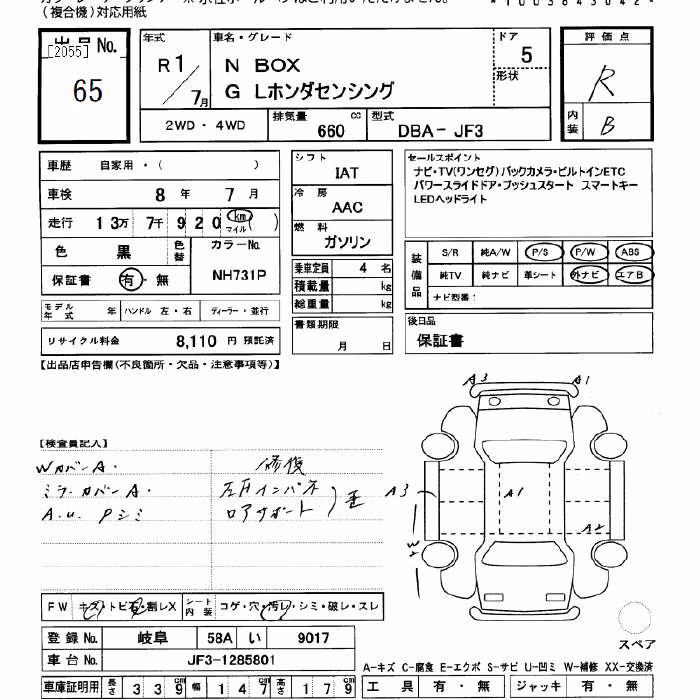 (複合機)対応用紙
*1003843042*
出品No. [2055] 65
年式 R1/7月
車名・グレード N BOX
G Lホンダセンシング
ドア 5
形状
評価点 R
内装 B
2WD・4WD
排気量 660 cc
型式 DBA-JF3
車歴 自家用・( )
車検 8年 7月
走行 13万 7千 920 km マイル ( )
色 黒 色替
カラーNo. NH731P
保証書 有・無
モデル年式 年 ハンドル 左・右 ディーラー・並行
リサイクル料金 8,110 円 預託済
シフト IAT
冷房 AAC
燃料 ガソリン
乗車定員 4 名
積載量 kg
総重量 kg
書類期限 月 日
セールスポイント
ナビ・TV(ワンセグ)バックカメラ・ビルトインETC
パワースライドドア・プッシュスタート スマートキー
LEDヘッドライト
装備品 S/R 純A/W P/S P/W ABS
純TV 純ナビ 革シート 外ナビ エアB
ナビ型番:
後日品
保証書
【出品店申告欄(不良箇所・欠品・注意事項等)】
【検査員記入】
Wカバー A.
ミラーカバー A.
A.u. Pシミ
修復
左右インパネ
ロアサポート
A3 A1
A3 A1
A2
W2
FW キズ・トビ石・割レX
シート内装 コゲ・穴・汚レ・シミ・破レ・スレ
登録No. 岐阜 58A い 9017
車台No. JF3-1285801
車庫証明用 長さ 339cm 幅 147cm 高さ 179cm
スペア
A-キズ C-腐食 E-エクボ S-サビ U-凹ミ W-補修 XX-交換済
工具 有・無 ジャッキ 有・無